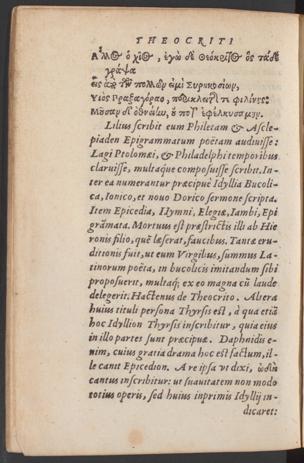 THEOCRITI
Ἄλλος ὁ χῖος, ἐγὼ δὲ Θεόκριτος ὃς τάδε
γράψα
εἷς ἀπὸ τῶν πολλῶν εἰμὶ Συρηκοσίων,
Υἱὸς Πραξαγόραο, περικλειτῆς τε φιλίνης·
Μοῦσαν δ' ὀθνείην, οὔ ποτ' ἐφελκυσάμην.
Lilius scribit eum Philetam & Ascle-
piaden Epigrammatum poëtam audiuisse:
Lagi Ptolomæi, & Philadelphi temporibus
claruisse, multaque composuisse scribit. In-
ter ea numerantur præcipuè Idyllia Bucoli-
ca, Ionico, et nouo Dorico sermone scripta.
Item Epicedia, Hymni, Elegiæ, Iambi, Epi
grãmata. Mortuus est præstrictis illi ab Hie
ronis filio, quẽ læserat, faucibus. Tantæ eru-
ditionis fuit, ut eum Virgilius, summus La-
tinorum poëta, in bucolicis imitandum sibi
proposuerit, multaq; ex eo magna cũ laude
delegerit. Hactenus de Theocrito. Altera
huius tituli persona Thyrsis est, à qua etiã
hoc Idyllion Thyrsis inscribitur, quia eius
in illo partes sunt præcipuæ. Daphnidis e-
nim, cuius gratia drama hoc est factum, il-
le canit Epicedion. A re ipsa ut dixi, ᾠδὴ
cantus inscribitur: ut suauitatem non modo
totius operis, sed huius inprimis Idyllij in-
dicaret: